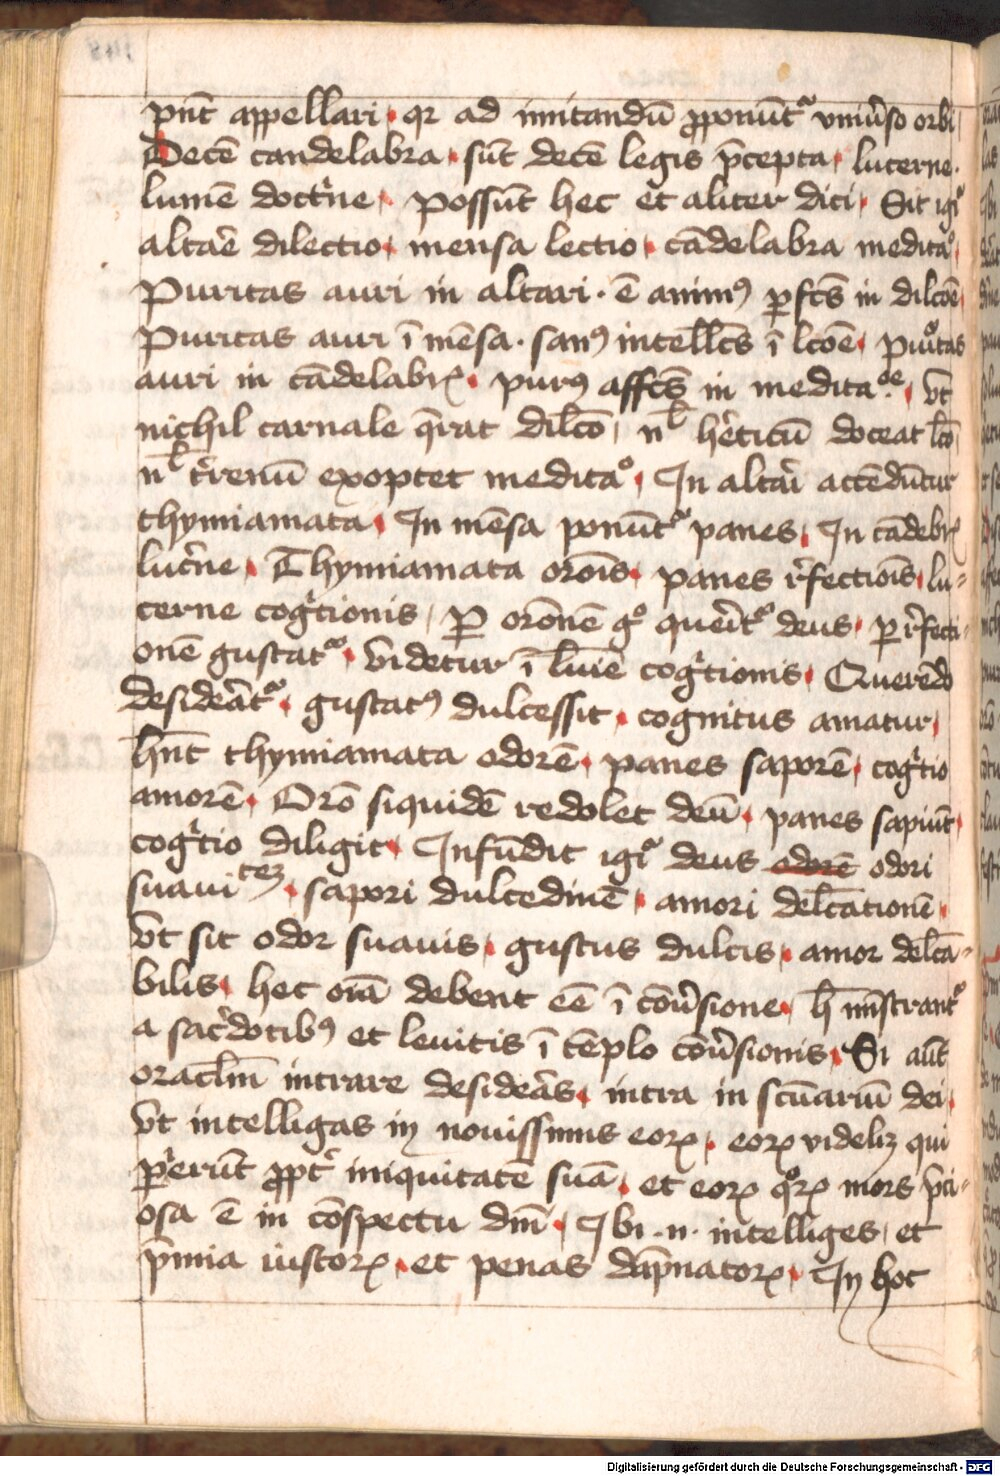 pn̄t appellari · qꝛ ad imitandū ꝓponūtᷣ vniu̓so orbi
Decē candelabra · sūt decē legis p̄cepta · lucerne ·
lumē doctͥne · possūt hec et aliter dici · Sit igͥ
altaꝛ̄e dilectio · mensa lectio · cādelabra meditaᵒ ·
Puritas auri in altari · ē animꝰ ꝑfcs̄ in dilcōe
Puritas auri ī mēsa · sanꝰ intellcs̄ ī lcōe · puͥtas
auri in cādelabrꝭ · purꝰ affcs̄ in meditaᵒᵉ · vt
nichil carnale q̄rat dilcō · nˡ he̓ticū doceat lcō
nˡ tr̓renū exoptet meditaᵒ · In altari accēdūtur
thymiamata · In mēsa ponūtᷣ panes · In cādelbrꝭ
luc̓ne · Thymiamata orōis · panes r̓fectiōis · lu-
cerne cogͥtionis · ꝑ orōnē gᵒ quer̓itᷣ deus · ꝑ r̓fecti-
onē gustatᷣ · videtur ī lūie cogͥtionis · Querēdo
desider̓atᷣ · gustatꝰ dulcessit · cognitus amatur ·
hn̄t thymiamata odorē · panes saporē · cogͥtio
amorē · Orō siquidē redolet deū · panes sapiūt ·
cogͥtio diligit · Infūdit igͥ deus odorē odori
suauiteꝫ · sapori dulcedinē · amori delcātionē ·
vt sit odor suauis · gustus dulcis · amor delcā-
bilis · hec oīa debent eē ī cōu̓sione · h̄ mīstrantᷣ
a sac̓dotibꝰ et leuitis ī tēplo cōu̓sionis · Si aūt
oraclm̄ intrare desider̓as · intra in scūariū dei ·
vt intelligas in nouissimis eoꝝ · eoꝝ videlꝫ qui
ꝑierūt ꝓptͥ iniquitatē suā · et eoꝝ qᵒꝝ mors p̄ci-
osa ē in cōspectu dnī · Ibi · n · intelliges · et
p̄mia iustoꝝ · et penas dāpnatoꝝ · In hoc
Digitalisierung gefördert durch die Deutsche Forschungsgemeinschaft - DFG